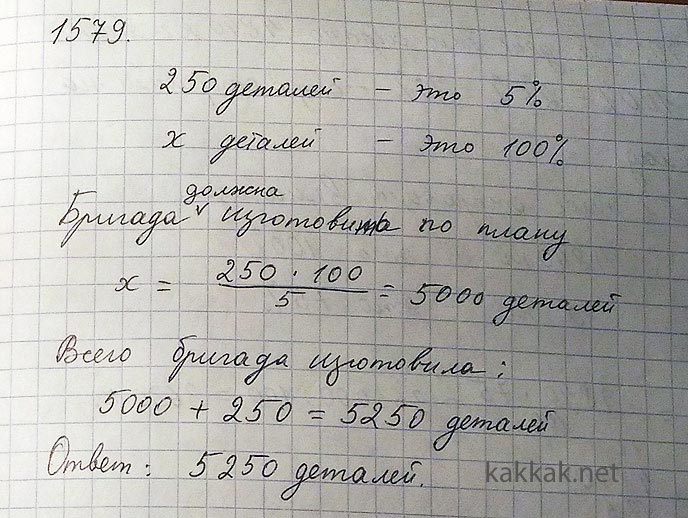 1579.
250 деталей - это 5%
х деталей - это 100%
должна
Бригада ∨ изготовить по плану
х = 250 · 100 / 5 = 5000 деталей
Всего бригада изготовила:
5000 + 250 = 5250 деталей
Ответ: 5250 деталей.
kakkak.net